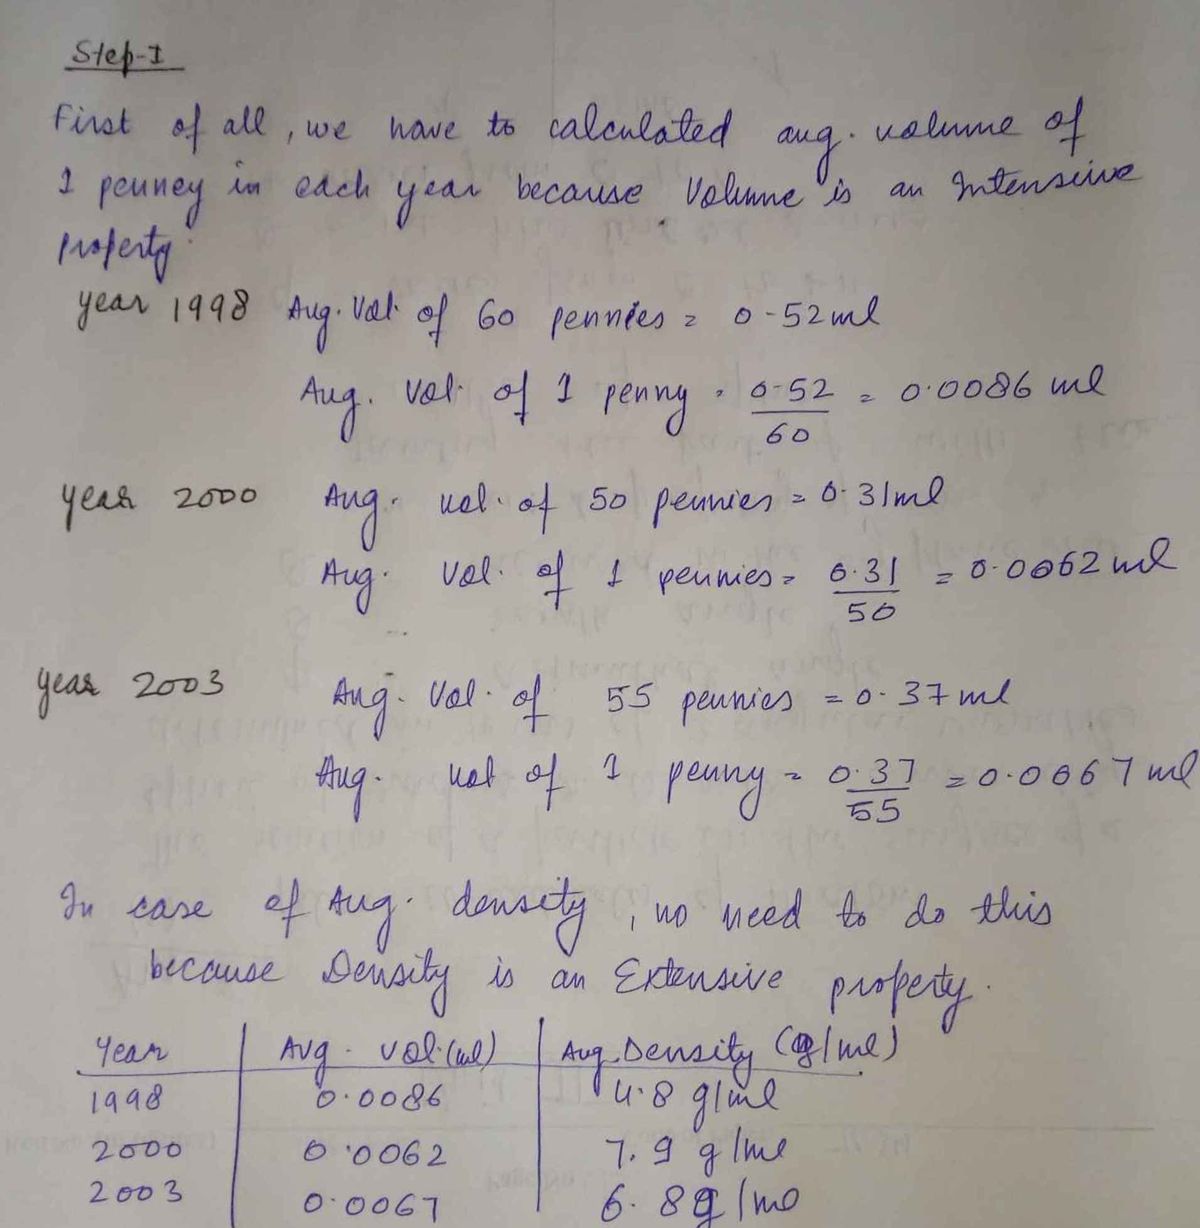 Step-I
First of all, we have to calculated avg. volume of
1 penney in each year because Volume is an Intensive
property.
year 1998 Avg. Vol. of 60 pennies = 0.52ml
Avg. Vol. of 1 penny = 0.52/60 = 0.0086 ml
year 2000 Avg. vol. of 50 pennies = 0.31ml
Avg. Vol. of 1 pennies = 0.31/50 = 0.0062 ml
year 2003 Avg. Vol. of 55 pennies = 0.37 ml
Avg. vol of 1 penny = 0.37/55 = 0.0067 ml
In case of Avg. density, no need to do this
because Density is an Extensive property.
Year Avg. vol. (ml) Avg. Density (g/ml)
1998 0.0086 4.8 g/ml
2000 0.0062 7.9 g/ml
2003 0.0067 6.8g/ml